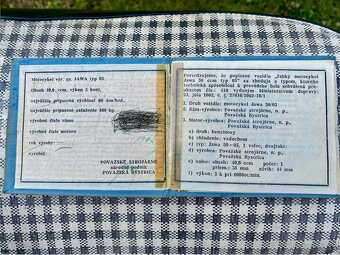 Motocykel výr. zn. JAWA typ 05
Obsah 49,8 ccm, výkon 5 koní,
najväčšia prípustná rýchlosť 60 km/hod.,
najväčšie prípustné zaťaženie 160 kg
výrobné číslo rámu
výrobné číslo motora
rok výroby:
vyrobil:
POVAŽSKÉ STROJÁRNE
národný podnik
POVAŽSKÁ BYSTRICA
Potvrdzujeme, že popísané vozidlo "Ľahký motocykel
Jawa 50 ccm typ 05" sa zhoduje s typom, ktorého
technická spôsobilosť k prevádzke bola schválená
1. Druh vozidla: motocykel Jawa 50/05
2. Rám-výrobca: Považské strojárne, n. p.,
Považská Bystrica
3. Motor-výrobca: Považské strojárne, n. p.,
Považská Bystrica
a) druh: benzínový
b) chladenie: vzduchom
c) typ: Jawa 50—05, 1 valec, dvojtaktný
d) výrobca: Považské strojárne, n. p.,
Považská Bystrica
e) valec: obsah: 49,8 ccm počet: 1
priemer: 38 mm zdvih: 44 mm